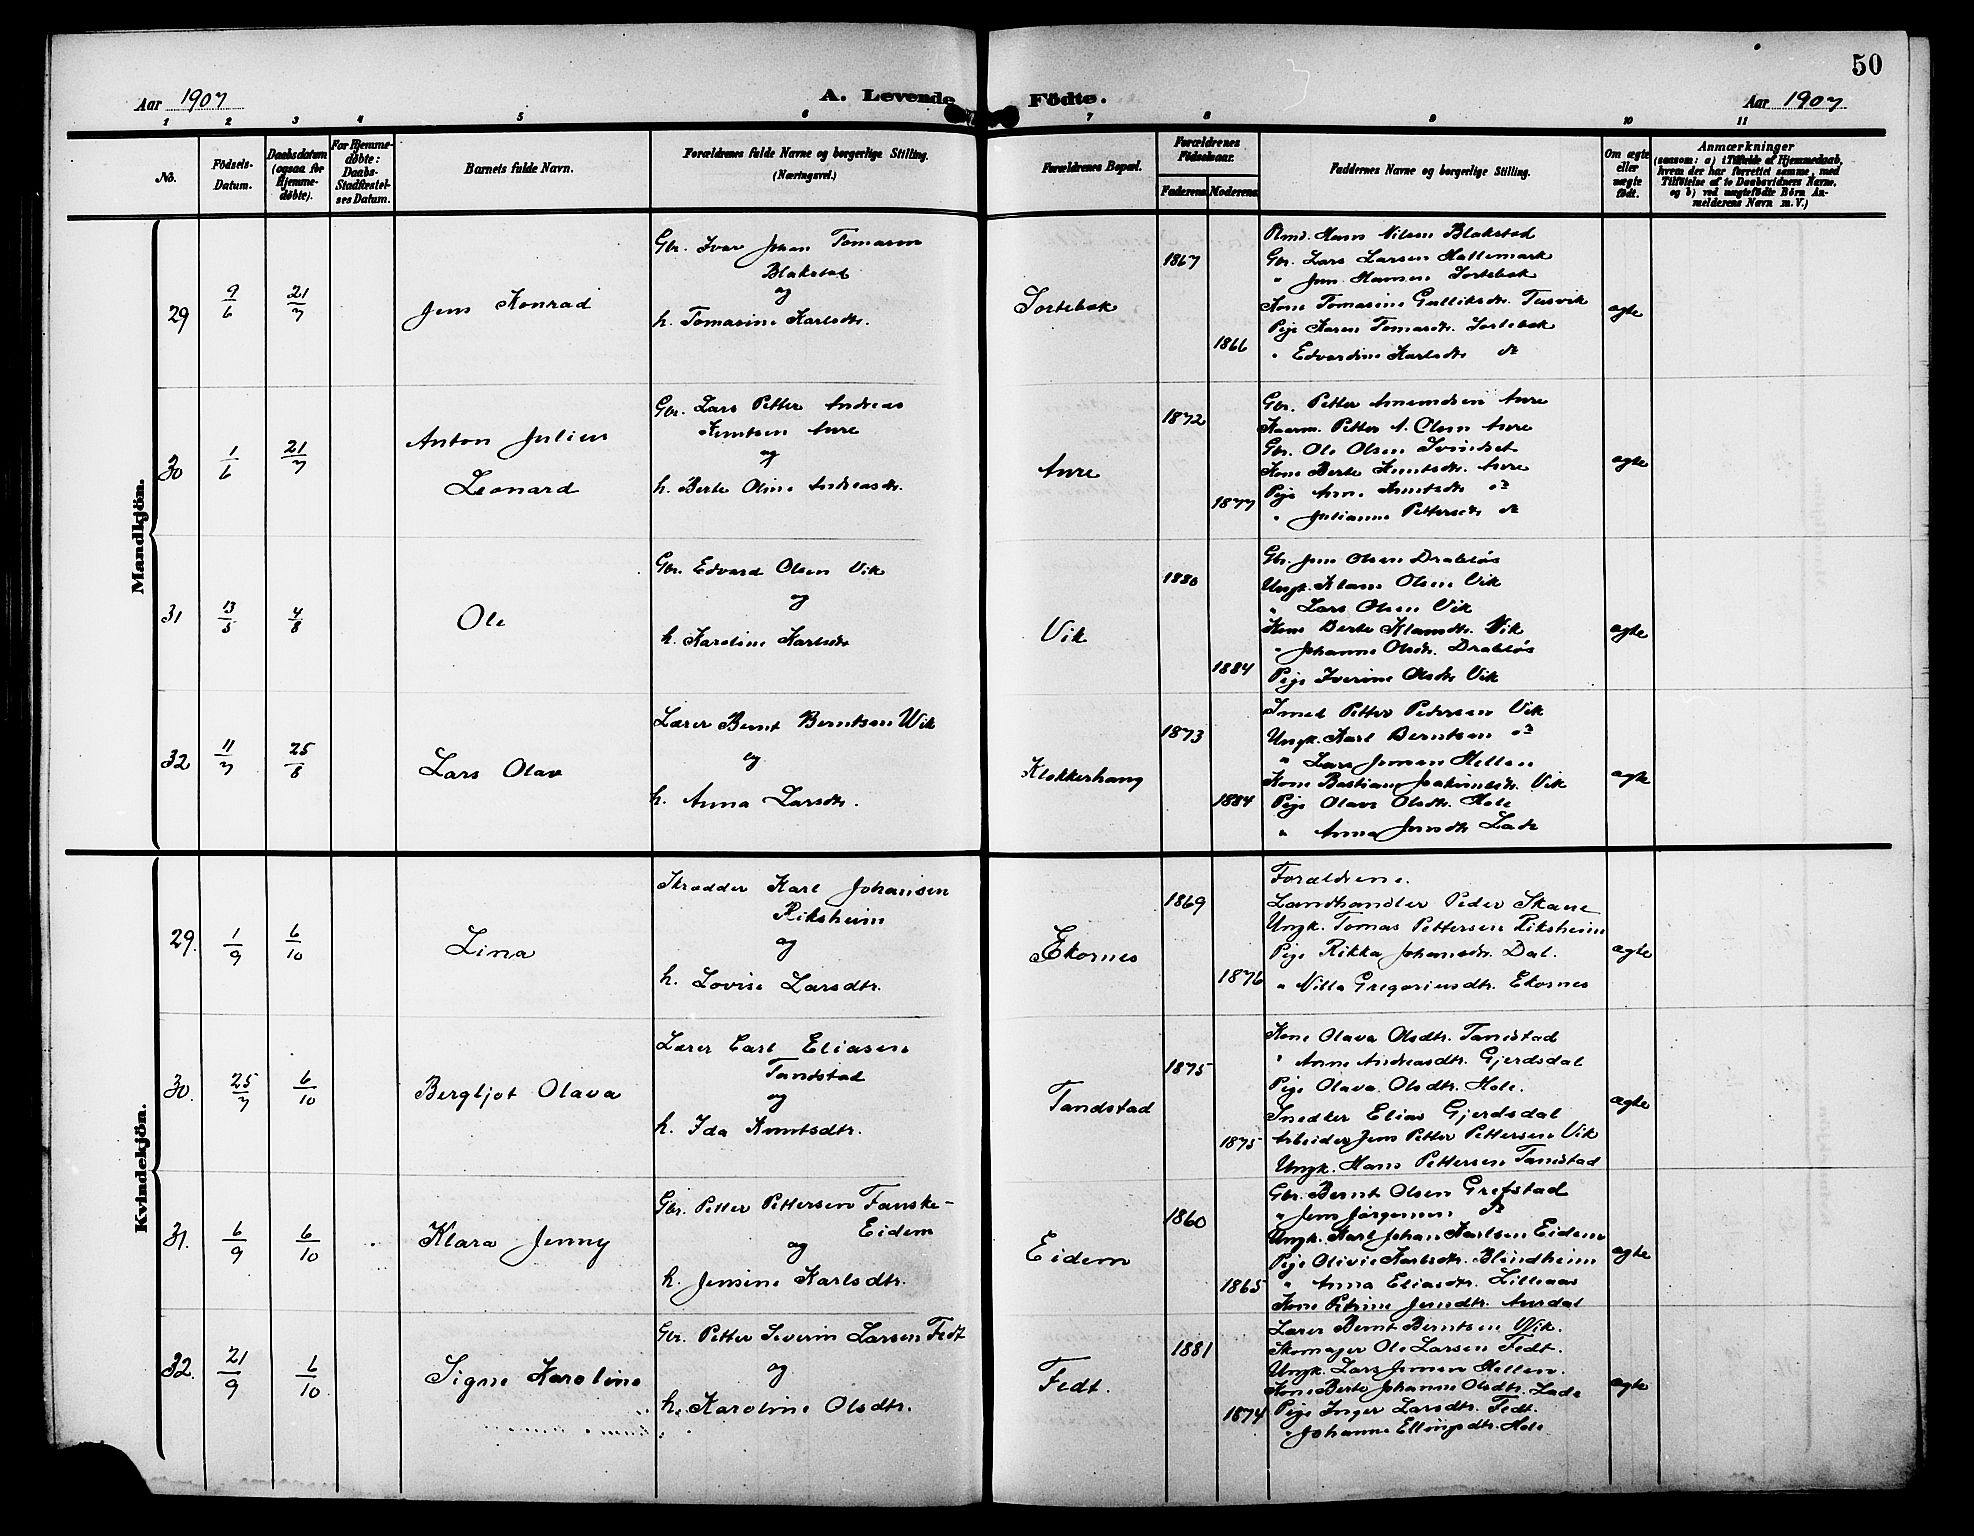 50
Aar 1907
A. Levende Födte.
Aar 1907
1 2 3 4 5 6 7 8 9 10 11
No.
Födsels-Datum.
Daabsdatum (ogsaa for Hjemme-döbte).
For Hjemme-döbte: Daabs-Stadfæstel-ses Datum.
Barnets fulde Navn.
Forældrenes fulde Navne og borgerlige Stilling.
(Næringsvei.)
Forældrenes Bopæl.
Forældrenes Födselsaar.
Faderens Moderens
Faddernes Navne og borgerlige Stilling.
Om ægte eller uægte födt.
Anmærkninger
(saasom: a) i Tilfælde af Hjemmedaab,
hvem der har forrettet samme, med
Tilföielse af to Daabsvidners Navne,
og b) ved uægtefödte Börn An-
melderens Navn m. V.)
Mandkjön.
29
9/6
21/7
Jens Konrad
Gbr. Ivar Johan Tomasen
Blakstad
og
h. Tomasine Karlsdtr.
Sortebak
1867
1866
Hans Nilsen Blakstad
Gbr. Lars Larsen Hallemark
" Jens Hansen Sortebak
Kone Tomasine
Pige Karen Tomasdtr. Sortebak
" Edvardine Karlsdtr. do
ægte
30
1/6
21/7
Anton Julius
Leonard
Gbr. Lars Petter Andreas
Knutsen Aure
og
h. Berte Oline Andreasdtr.
Aure
1872
1877
Gbr. Petter Amundsen Aure
Petter A. Olsen Aure
Gbr. Ole Olsen Svindset
Kone Berte Knutsdtr. Aure
Pige Anne Knutsdtr. do
" Julianne Pettersdtr. do
ægte
31
13/5
4/8
Ole
Gbr. Edvard Olsen Vik
og
h. Karoline Karlsdtr.
Vik
1880
1884
Gbr. Jens Olsen Drabløs
Ungk. Klaus Olsen Vik
" Lars Olsen Vik
Kone Berte Klausdtr. Vik
" Johanne Olsdtr. Drabløs
Pige Iverine Olsdtr. Vik
ægte
32
11/7
25/8
Lars Olav
Lærer Bernt Berntsen Wik
og
h. Anna Larsdtr.
Klokkerhaug
1873
1884
Smed Petter Pedersen Vik
Ungk. Karl Berntsen do
" Lars Jensen Hellen
Kone Bastiane Joakimsdtr. Vik
Pige Olava Olsdtr. Hole
" Anna Jensdtr. Lade
ægte
Kvindekjön.
29.
1/9
6/10
Lina
Skrædder Karl Johansen
Riksheim
og
h. Lovise Larsdtr.
Ekornes
1869
1876
Forældrene.
Landhandler Peder Skane
Ungk. Tomas Pettersen Riksheim
Pige Rikka Johansdtr. Dal.
" Nilla Gregoriusdtr. Ekornes
ægte
30.
25/7
6/10
Bergljot Olava
Lærer Carl Eliasen
Tandstad
og
h. Ida Knutsdtr.
Tandstad
1875
1875
Kone Olava Olsdtr. Tandstad
" Anne Andreasdtr. Gjerdsdal
Pige Olava Olsdtr. Hole.
Snedker Elias Gjerdsdal
Arbeider Jens Petter Pettersen Vik
Ungk. Hans Pettersen Tandstad
ægte
31.
6/9
6/10
Klara Jenny
Gbr. Petter Pettersen Fauske-
Eidem
og
h. Jensine Karlsdtr.
Eidem
1860
1865
Gbr. Bernt Olsen Grefstad
" Jens Jørgensen do
Ungk. Karl Johan Karlsen Eidem
Pige Olivie Karlsdtr. Blindheim
" Anna Eliasdtr. Lilleaas
Kone Petrine Jensdtr. Aursdal
ægte
32.
21/9
6/10
Signe Karoline
Gbr. Petter Severin Larsen Fedt
og
h. Karoline Olsdtr.
Fedt.
1881
1874
Lærer Bernt Berntsen Wik.
Skomager Ole Larsen Fedt.
Ungk. Lars Jensen Hellen.
Kone Berte Johanne Olsdtr. Lade
Pige Inger Larsdtr. Fedt.
" Johanne Ellingsdtr. Hole
ægte